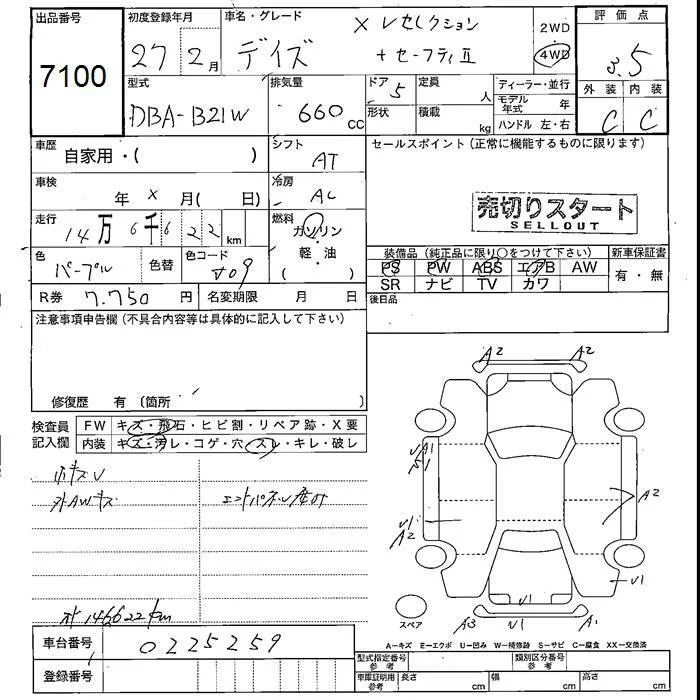 出品番号
7100
初度登録年月
27 2月
車名・グレード
デイズ
X Vセレクション
+セーフティⅡ
2WD
4WD
評価点
3.5
外装 内装
C C
型式
DBA-B21W
排気量
660cc
ドア 5
形状
定員 人
積載 kg
ディーラー・並行
モデル年式 年
ハンドル 左・右
車歴
自家用・( )
シフト
AT
セールスポイント(正常に機能するものに限ります)
車検
年 X 月( 日)
冷房
AC
売切りスタート
SELLOUT
走行
14万6千622km
燃料
ガソリン
・
軽・油
色
パープル
色替
色コード
装備品(純正品に限り○をつけて下さい)
新車保証書
PS PW ABS エアB AW
SR ナビ TV カワ
有・無
R券 7.750 円
名変期限 月 日
後日品
注意事項申告欄(不具合内容等は具体的に記入して下さい)
修復歴 有 (箇所 )
検査員記入欄
FW キズ・飛石・ヒビ割・リペア跡・X要
内装 キズ・汚レ・コゲ・穴・スレ・キレ・破レ
小キズV
外AWキズ
146622km
A2 A2
A1
S1
A2
V1
A2
V1
V1
スペア
A3 V1 A1
A-キズ E-エクボ U-凹み W-補修跡 S-サビ C-腐食 XX-交換済
車台番号 0225259
登録番号
型式指定番号 参考
類別区分番号 参考
車庫証明用 参考
長さ cm 幅 cm 高さ cm